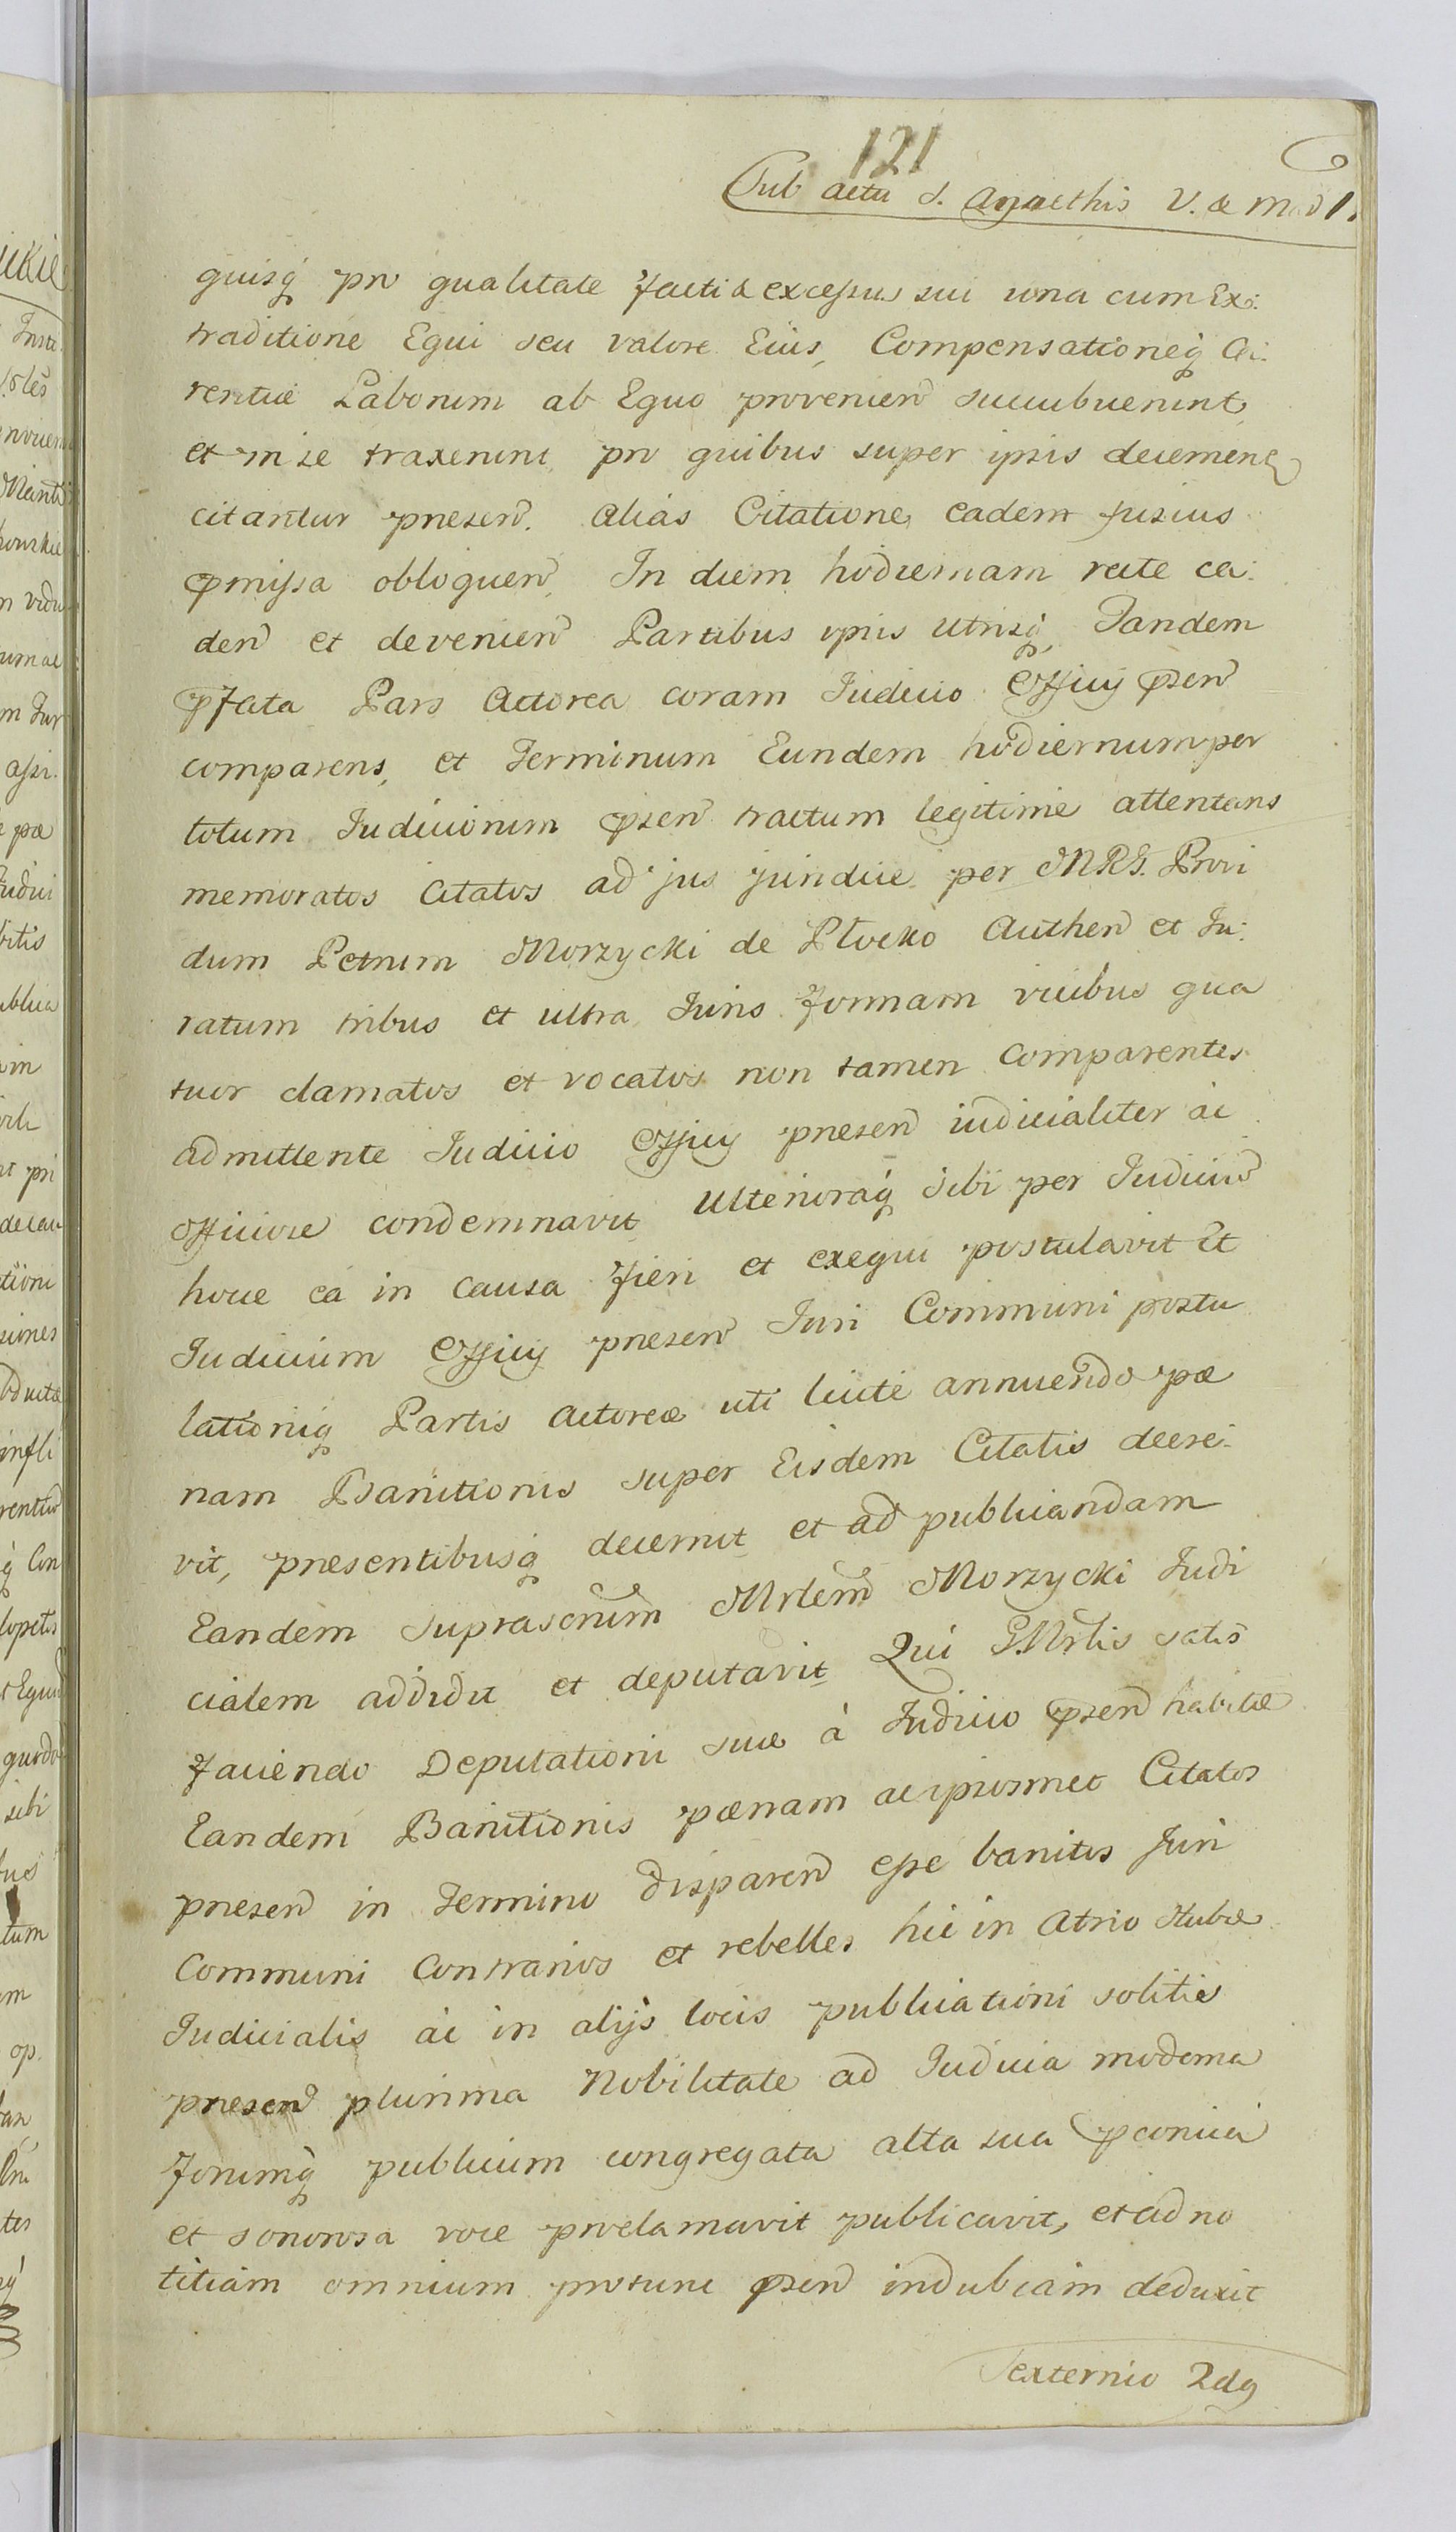 121
Sub actu S. Agnethis V. & M. ad 1.
quisq́ pro qualitate facti & excessus sui una cum Ex:
traditione Equi seu valore Eius, Compensationeq́ Ca:
rentiæ Laborum ab Equo provenien̄ succubuerunt,
et in se traxerunt, pro quibus super ipsis decernen
citantur presen̄. alias Citatione eadem fusius
p̱missa obloquen̄, In diem hodiernam recte ca:
den̄ et devenien̄ Partibus ip̄is utrisq́, Tandem
p̱fata Pars Actorea coram Iudicio Officij p̱sen̄
comparens, et Terminum Eundem hodiernum per
totum Iudiciorum p̱sen̄ tractum legitime attentans
memoratos Citatos ad jus juridice per MRS. Provi
dum Petrum Morzycki de Płocko Authen̄ et Iu:
ratum tribus et ultra Iuris formam vicibus qua
tuor clamatos et vocatos non tamen comparentes
admittente Iudicio Officij presen̄ iudicialiter ac
officiose condemnavit, ulterioraq́ sibi per Iudiciū
hocce eá in causa fieri et exequi postulavit Et
Iudicium Officij presen̄ Iuri Communi postu
lationiq́ Partis Actoreæ uti licite annuendo pæ
nam Banitionis super Eisdem Citatis decre:
vit, presentibusq́ decernit et ad publicandam
Eandem suprascrīm Mrlem̄ Morzycki Iudi
cialem addidit et deputavit Qui G. Mrlis satis
faciendo Deputationi suæ à Iudicio p̱sen̄ habitæ
Eandem Banitionis pænam ac ipsosmet Citatos
presen̄ in Termino disparen̄ esse banitos Juri
Communi Contrarios et rebelles hic in Atrio Stubæ
Iudicialis ac in alijs locis publicationi solitis
presen̄ plurima Nobilitate ad Iudicia moderna
forumq́ publicum congregata alta sua p̱conica
et sonorosa voce proclamavit publicavit, et ad no
titiam omnium protunc p̱sen̄ indubiam deduxit
Sexternio 2dg